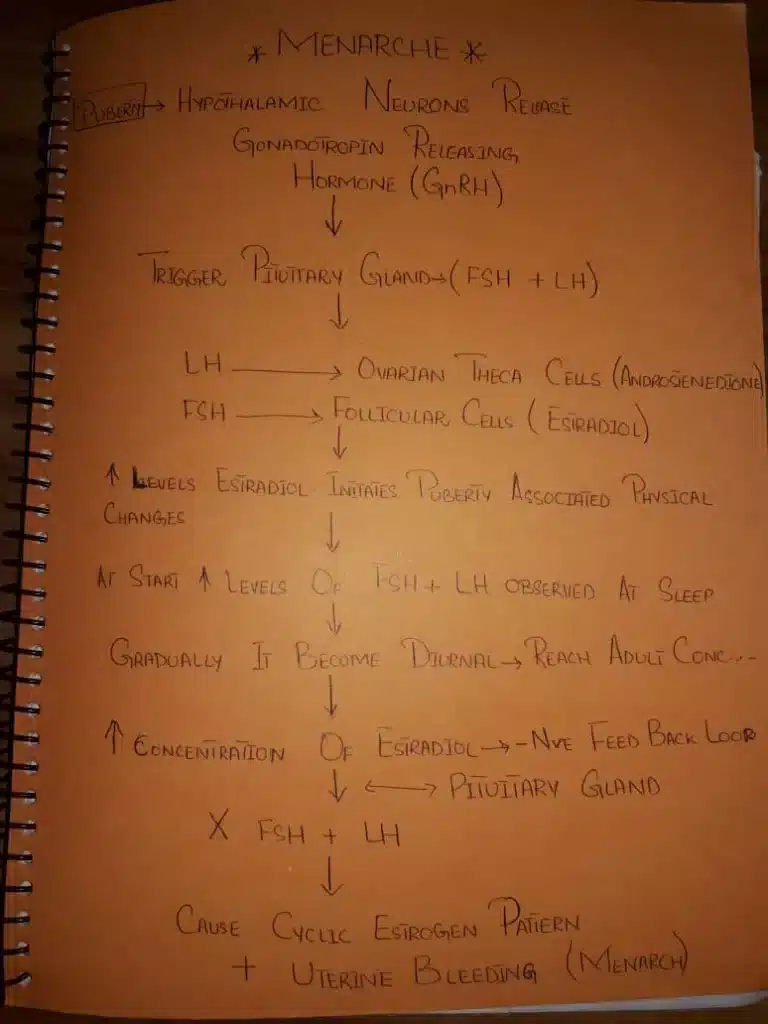 * MENARCHE *
PUBERTY → HYPOTHALAMIC NEURONS RELEASE
GONADOTROPIN RELEASING
HORMONE (GnRH)
↓
TRIGGER PITUITARY GLAND → (FSH + LH)
↓
LH → OVARIAN THECA CELLS (ANDROSTENEDIONE)
FSH → FOLLICULAR CELLS (ESTRADIOL)
↓
↑ LEVELS ESTRADIOL INITATES PUBERTY ASSOCIATED PHYSICAL
CHANGES
↓
AT START ↑ LEVELS OF FSH + LH OBSERVED AT SLEEP
↓
GRADUALLY IT BECOME DIURNAL → REACH ADULT CONC...-
↓
↑ CONCENTRATION OF ESTRADIOL → -NVE FEED BACK LOOP
↓ ↔ PITUITARY GLAND
X FSH + LH
↓
CAUSE CYCLIC ESTROGEN PATTERN
+ UTERINE BLEEDING (MENARCH)